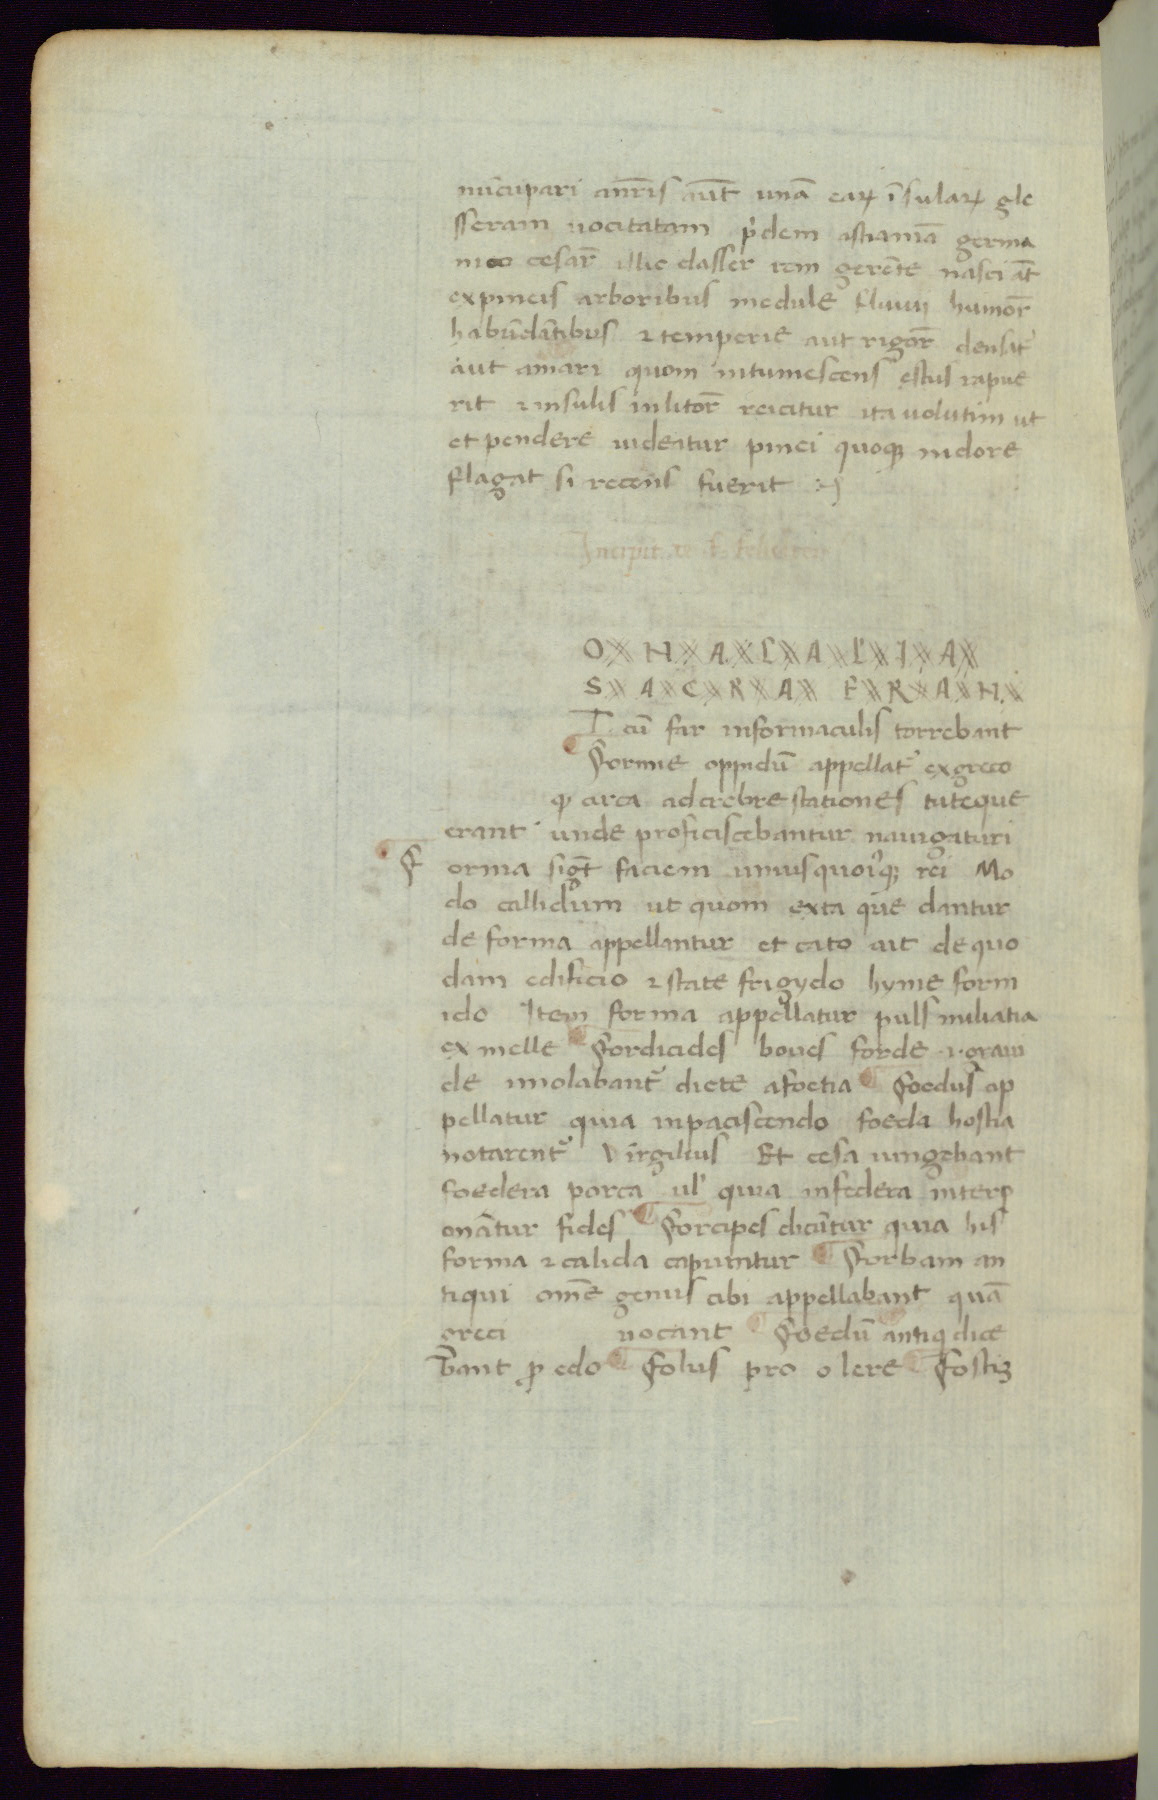 nūcupari anr̄is aūt unā eaꝝ īsulaꝝ gle
sseram uocitatam p'dem astianiā germa
nico cesar̄ illic classer rem gerēte nasci āt
expineis arboribus medule fluuij humor̄
habūdātibus ⁊ temperie aut rigor̄ densit'
aut amari quom intumescens estus rapue
rit ⁊ insulis inlitor̄ reicitur ita uolutim ut
et pendere uideatur pinei quoqꝫ nidore
flagat si recens fuerit :~
Incipit
O N A L A L I A
S A C R A E R A N
T. cū far informaculis torrebant
Formie oppidū appellat' exgreco
ꝙ circa ad crebre stationes tuteque
erant unde proficiscebantur nauigaturi
F orma sigt̄ faciem uniusquoi'qꝫ rei Mo
do callidum ut quom exta que dantur
de forma appellantur et cato ait dequo
dam edificio ⁊ state frigydo hyme form
ido Item forma appellatur puls miliatia
ex melle Fordicides boues forde .i. graui
de imolabant' dicte afoetia Foedus ap
pellatur quia inpaciscendo foeda hostia
notarent' Virgilius Et cesa iungebant
foedera porca ul' quia infedera interp
onātur fides Forcipes dicūtur quia his
forma ⁊ calida capiuntur Forbam an
tiqui omē genus cibi appellabant quā
greci uocant Foedū antiq dice
bant ꝓ edo Folus pro olere Fostiꝫ